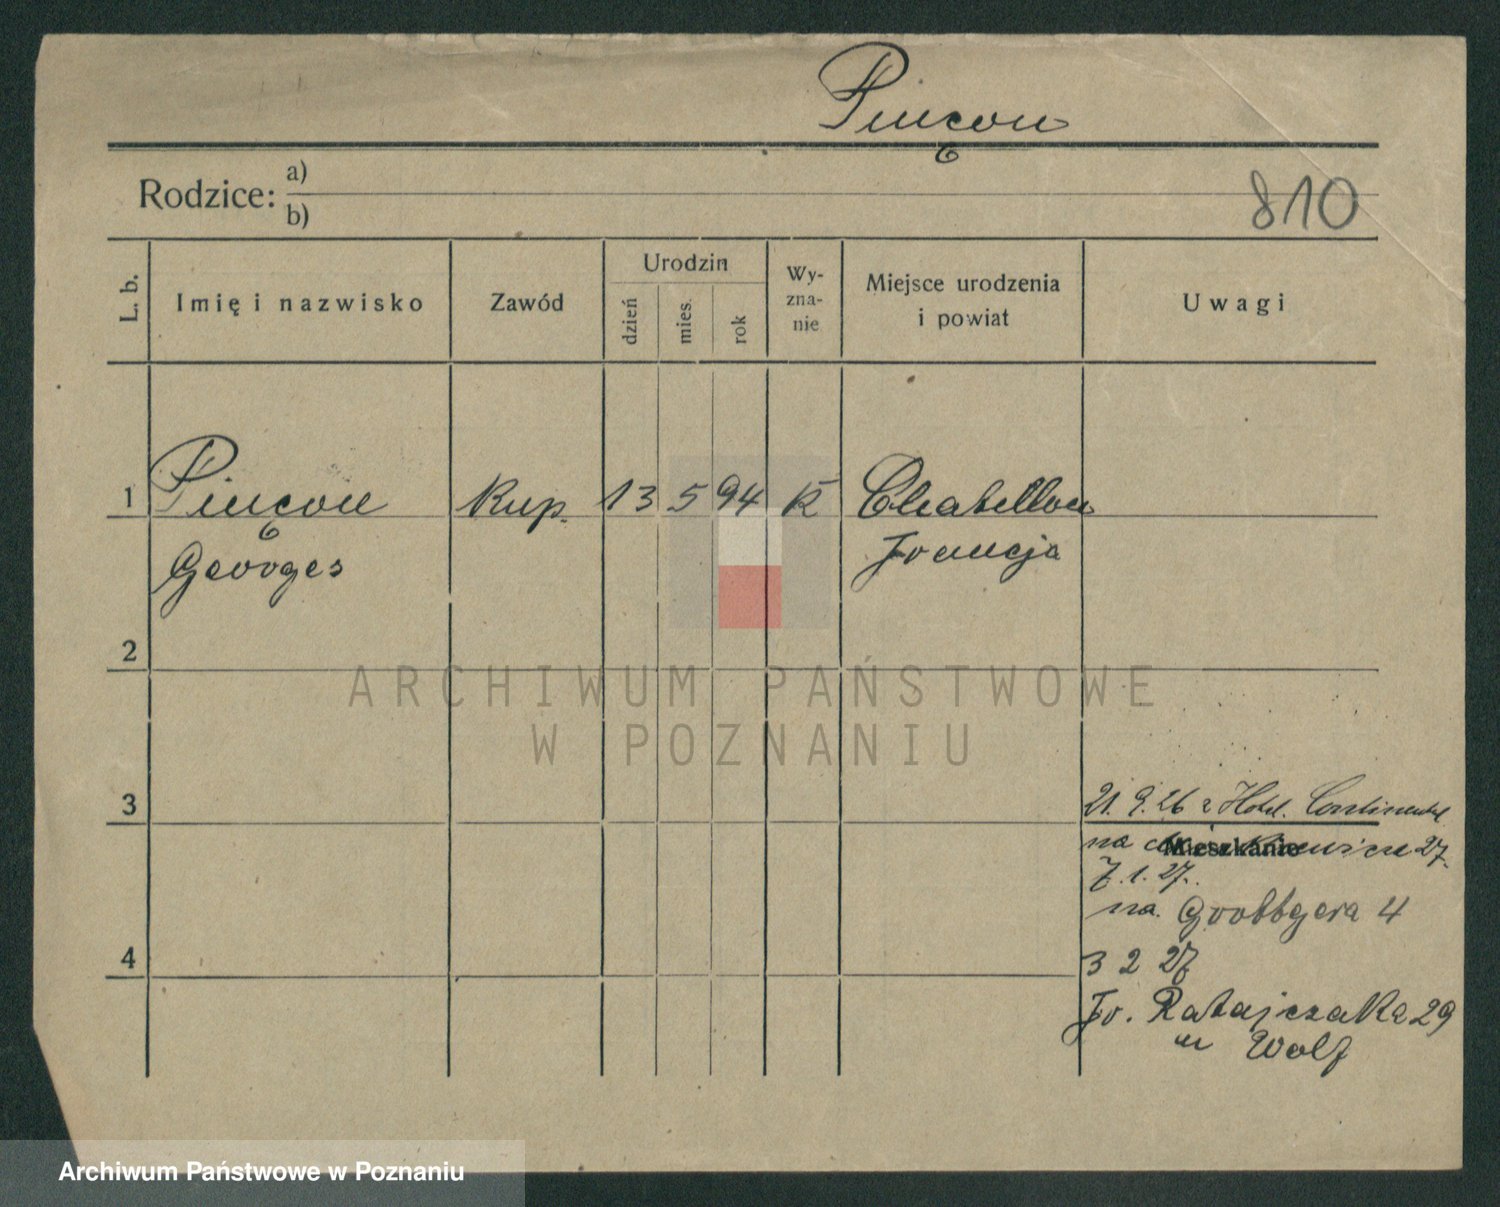 Pinçon
Rodzice: a)
b)
810
L. b. Imię i nazwisko Zawód Urodzin dzień mies. rok Wy-zna-nie Miejsce urodzenia i powiat Uwagi
1 Pinçon Kup. 13 5 94 K Chatellon
Georges Francja
2
ARCHIWUM PAŃSTWOWE
W POZNANIU
3
21. 9. 26 z Hotel. Continental
na 27.
Mieszkanie
7. 1. 27.
na. Grottgera 4
4
3 2 27
Fr. Ratajczaka 29
u Wolf
Archiwum Państwowe w Poznaniu